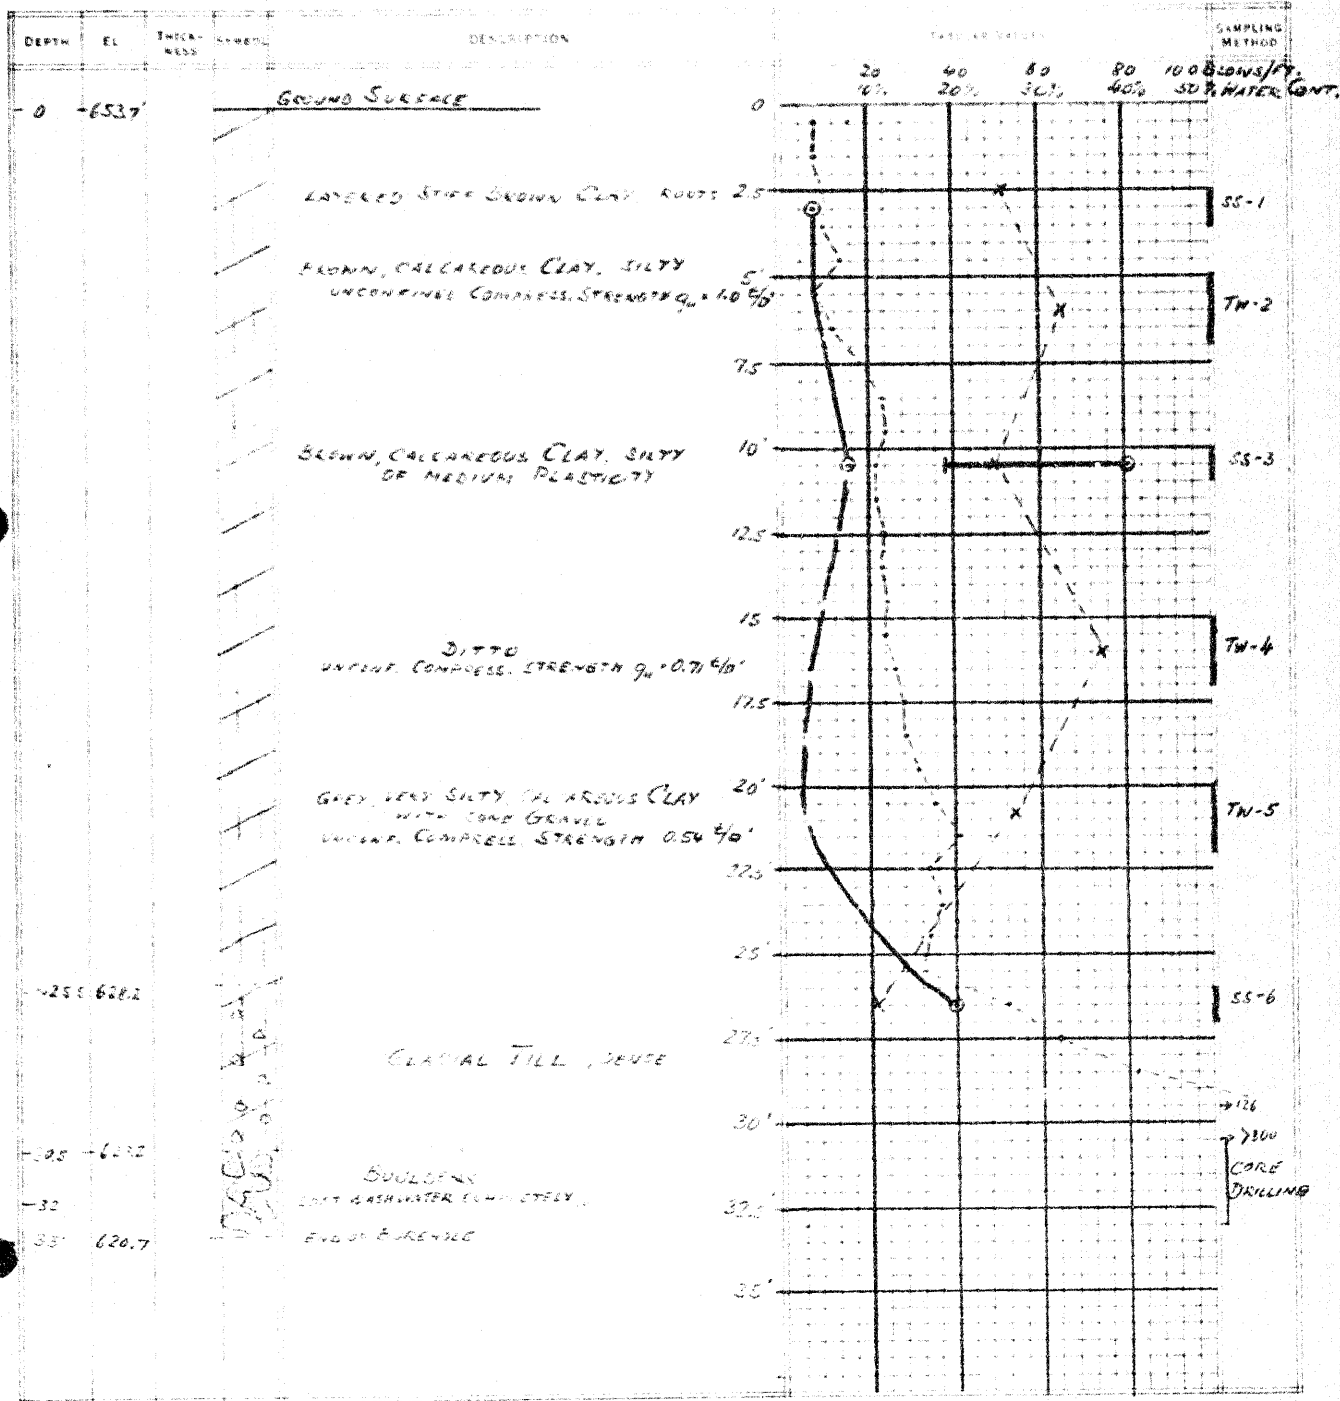 DEPTH EL THICK-NESS SYMBOL DESCRIPTION TABULAR VALUES SAMPLING METHOD
20 40 60 80 100 BLOWS/FT.
10% 20% 30% 40% 50% WATER CONT.
0 653.7' GROUND SURFACE 0
LAYERED STIFF BROWN CLAY ROOTS 2.5 SS-1
BROWN, CALCAREOUS CLAY, SILTY 5'
UNCONFINED COMPRESS. STRENGTH qu = 1.0 t/□' TW-2
7.5
10'
BROWN, CALCAREOUS CLAY, SILTY SS-3
OF MEDIUM PLASTICITY
12.5
15
DITTO TW-4
UNCONF. COMPRESS. STRENGTH qu = 0.71 t/□'
17.5
20'
GREY, VERY SILTY CALCAREOUS CLAY
WITH SOME GRAVEL TW-5
UNCONF. COMPRESS. STRENGTH 0.54 t/□'
22.5
25'
25.5 628.2 SS-6
27.5
GLACIAL TILL, DENSE
126
30'
>300
30.5 623.2
CORE
BOULDERS
DRILLING
32 LOST WASHWATER COMPLETELY
32.5
33' 620.7 END OF BOREHOLE
35'